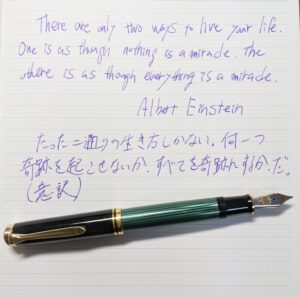 There are only two ways to live your life.
One is as though nothing is a miracle. The
other is as though everything is a miracle.
Albert Einstein
たった二通りの生き方しかない。何一つ
奇跡を起こせないか、すべてを奇跡にするか、だ。
(意訳)